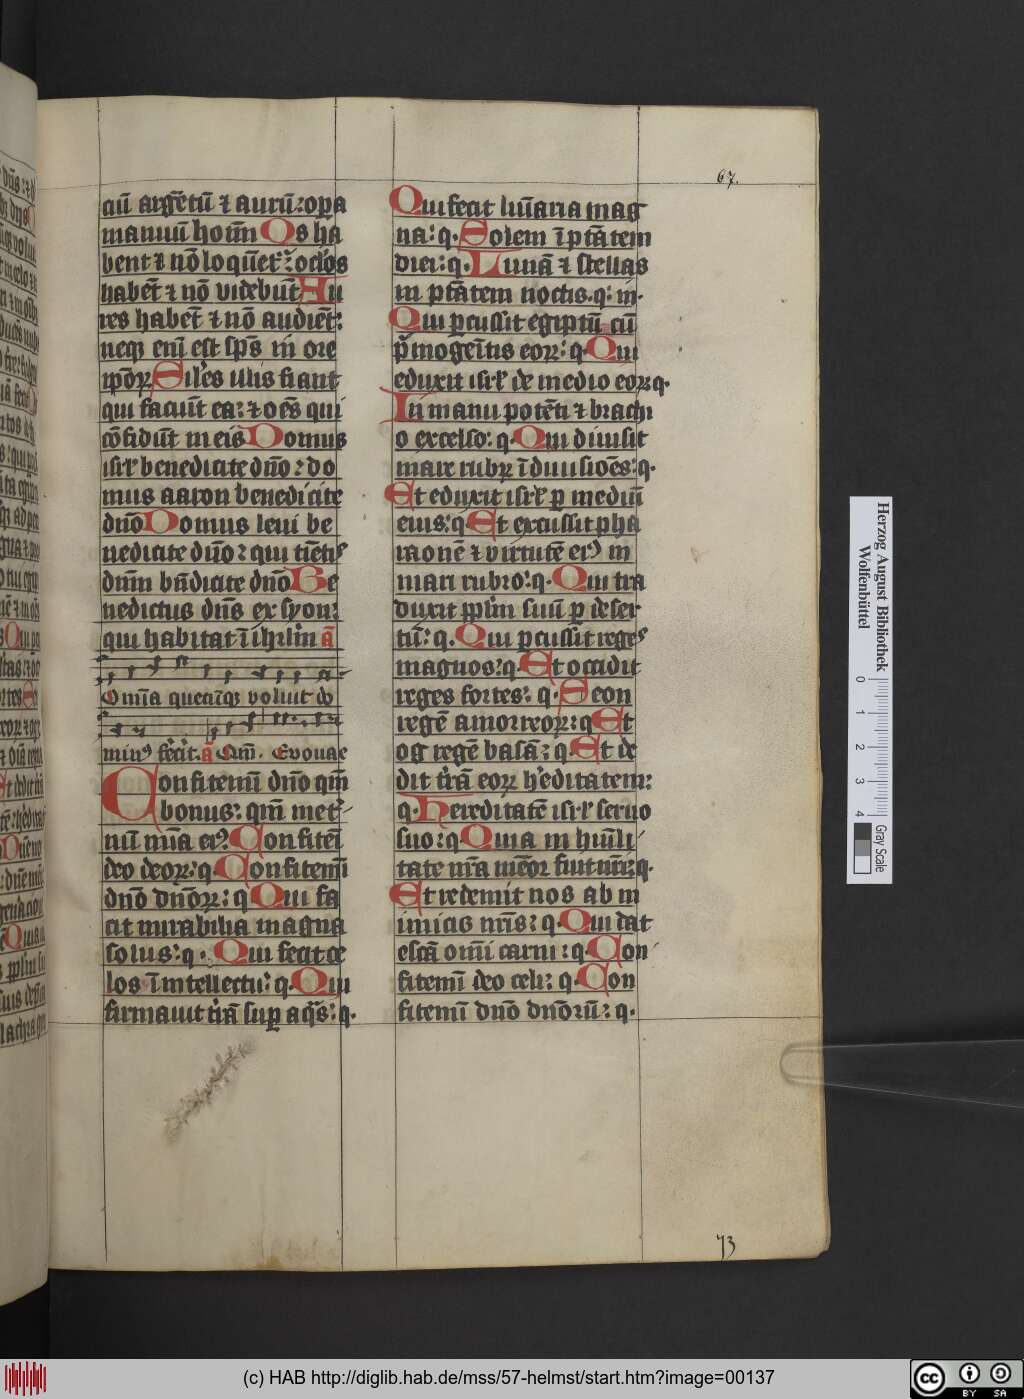 67.
ciū argētū ⁊ aurū: opa
manuū hoım̄ Os ha
bent ⁊ nō loquēt᷑: oclōs
habēt ⁊ nō videbūt Au
res habēt ⁊ nō audiēt:
neqꝫ enī est sp̄s in ore
ip̄oꝝ Sil'es illis fiant
qui faciūt ea: ⁊ oēs qui
cōfidūt in eis Domus
isrl' benedicite dn̄o: do
mus aaron benedicite
dn̄o Domus leui be
nedicite dn̄o: qui tiētis
dn̄m bn̄dicite dn̄o Be
nedictus dn̄s ex syon:
qui habitat ī ihrlm̄ ā
Omīa quecūqꝫ voluit do
minꝰ fecit. ā Qm̄. Evovae
Confitemī dn̄o qm̄
bonus: qm̄ in et᷑
nū mīa eiꝰ. Confitemī
deo deoꝝ: q. Confitemī
dn̄o dn̄oꝝ: q Qui fa
cit mirabilia magna
solus: q. Qui fecit ce
los ī intellectu: q. Qui
firmauit t'rā sup aq̄s: q.
Qui fecit luīaria mag
na: q. Solem ī ptātem
diei: q. Lunā ⁊ stellas
in ptātem noctis. q: in.
Qui ꝑcussit egiptū cū
p̄mogeītis eoꝝ: q. Qui
eduxit isrl' de medio eoꝝ q.
In manu potēti ⁊ brachi
o excelso: q. Qui diuisit
mare rubꝝ ī diuisiōes: q.
Et eduxit isrl' ꝑ mediū
eius: q Et excussit pha
raonē ⁊ virtutē eiꝰ in
mari rubro: q. Qui tra
duxit pplm̄ suū ꝑ deser
tū: q. Qui ꝑcussit reges
magnos: q. Et occidit
reges fortes: q. Seon
regē amorreoꝝ: q Et
og regē basā: q. Et de
dit t'rā eoꝝ h'editatem:
q. Hereditatē isrl' seruo
suo: q. Quia in huīli
tate nr̄a mēor fuit nr̄i: q.
Et redemit nos ab in
imicis nr̄is: q. Qui dat
escā omī carni: q. Con
fitemī deo celi: q. Con
fitemī dn̄o dn̄orū: q.
73
Herzog August Bibliothek
Wolfenbüttel
0 1 2 3 4
Gray Scale
(c) HAB http://diglib.hab.de/mss/57-helmst/start.htm?image=00137
cc BY SA